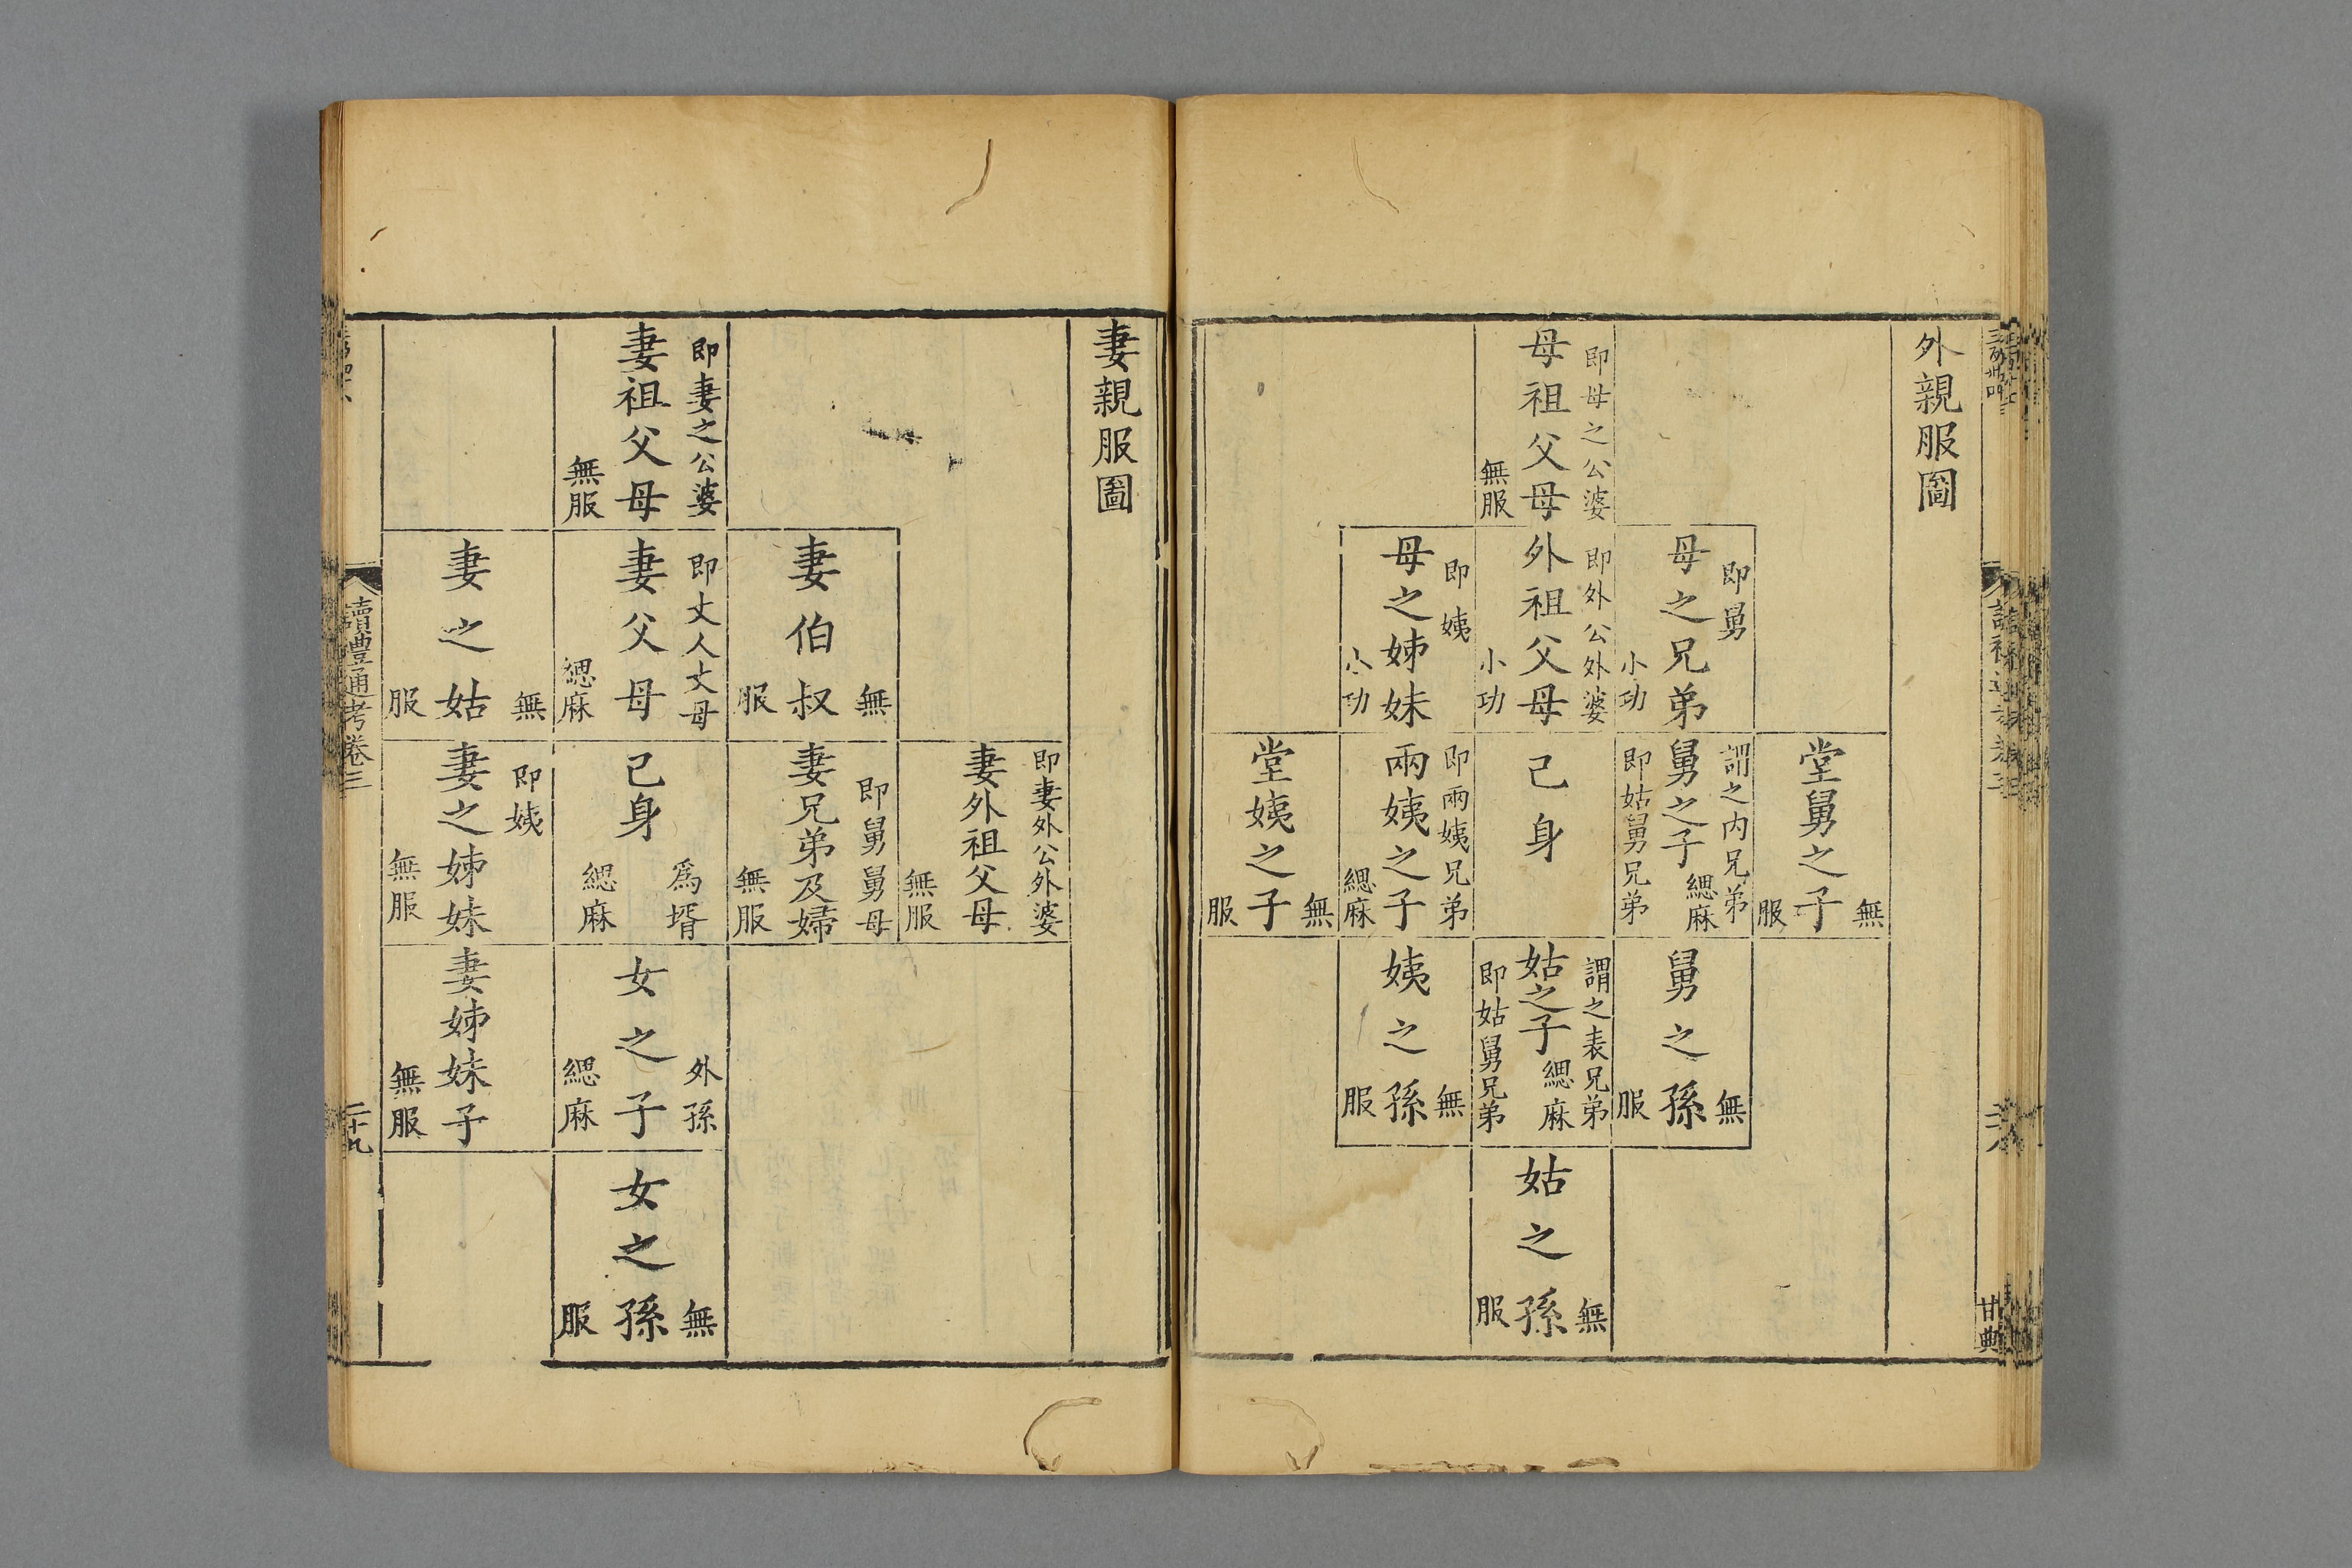 外親服圖
即母之公婆
母祖父母
無服
即舅
母之兄弟
小功
即外公外婆
外祖父母
小功
即姨
母之姊妹
小功
堂舅之子
無服
謂之內兄弟
舅之子
緦麻
即姑舅兄弟
己身
即兩姨兄弟
兩姨之子
緦麻
堂姨之子
無服
舅之孫
無服
謂之表兄弟
姑之子
緦麻
即姑舅兄弟
姨之孫
無服
姑之孫
無服
甘典
妻親服圖
即妻之公婆
妻祖父母
無服
妻伯叔
無服
即丈人丈母
妻父母
緦麻
妻之姑
無服
即妻外公外婆
妻外祖父母
無服
即舅舅母
妻兄弟及婦
無服
己身
為壻
緦麻
即姨
妻之姊妹
無服
女之子
外孫
緦麻
妻姊妹子
無服
女之孫
無服
讀禮通考卷三
二十九